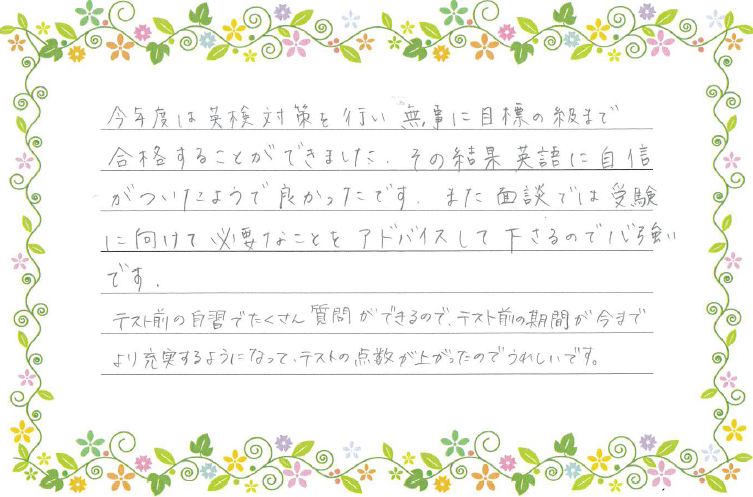 今年度は英検対策を行い無事に目標の級まで
合格することができました。その結果英語に自信
がついたようで良かったです。また面談では受験
に向けて必要なことをアドバイスして下さるので心強い
です。
テスト前の自習でたくさん質問ができるので、テスト前の期間が今まで
より充実するようになって、テストの点数が上がったのでうれしいです。